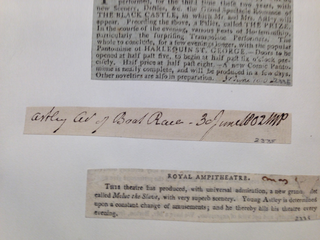 permanent, for the third time these two years, with
new Scenery, Dresses, &c. the Grand Spectacle
THE BLACK CASTLE, in which Mr. and Mrs. Astley will
appear. Preceding the above, a Ballet, called THE PRIZE.
In the course of the evening, various Feats of Horsemanship,
Particularly the surprising Troops
The whole to conclude, for a few evenings longer, with the popular
Pantomime of HARLEQUIN ST. GEORGE. Doors to be
opened at half past five, to begin at half past six o'clock pre-
cisely. Half price at half past eight. A new Comic Panto-
mime is nearly complete, and will be produced in a few days.
Other novelties are also in preparation. 2235
Astley Ad of Boat Race - 30 June 1802 MP
2235
ROYAL AMPHITHEATRE.
THIS theatre has produced, with universal admiration, a new grand
called the Slave, with very superb scenery. Young Astley is determined
upon a constant change of amusements; and he thereby fills his theatre every
evening. 2235